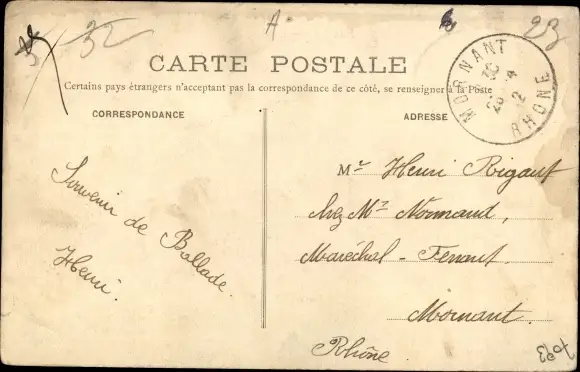 5 - 32
A
23
CARTE POSTALE
Certains pays étrangers n'acceptant pas la correspondance de ce côté, se renseigner à la Poste
CORRESPONDANCE
ADRESSE
MORNANT
RHONE
Souvenir de Ballade.
Henri.
Mr Henri Rigaut
chez Mr Normand,
Maréchal - Ferrant.
Mornant.
Rhône.